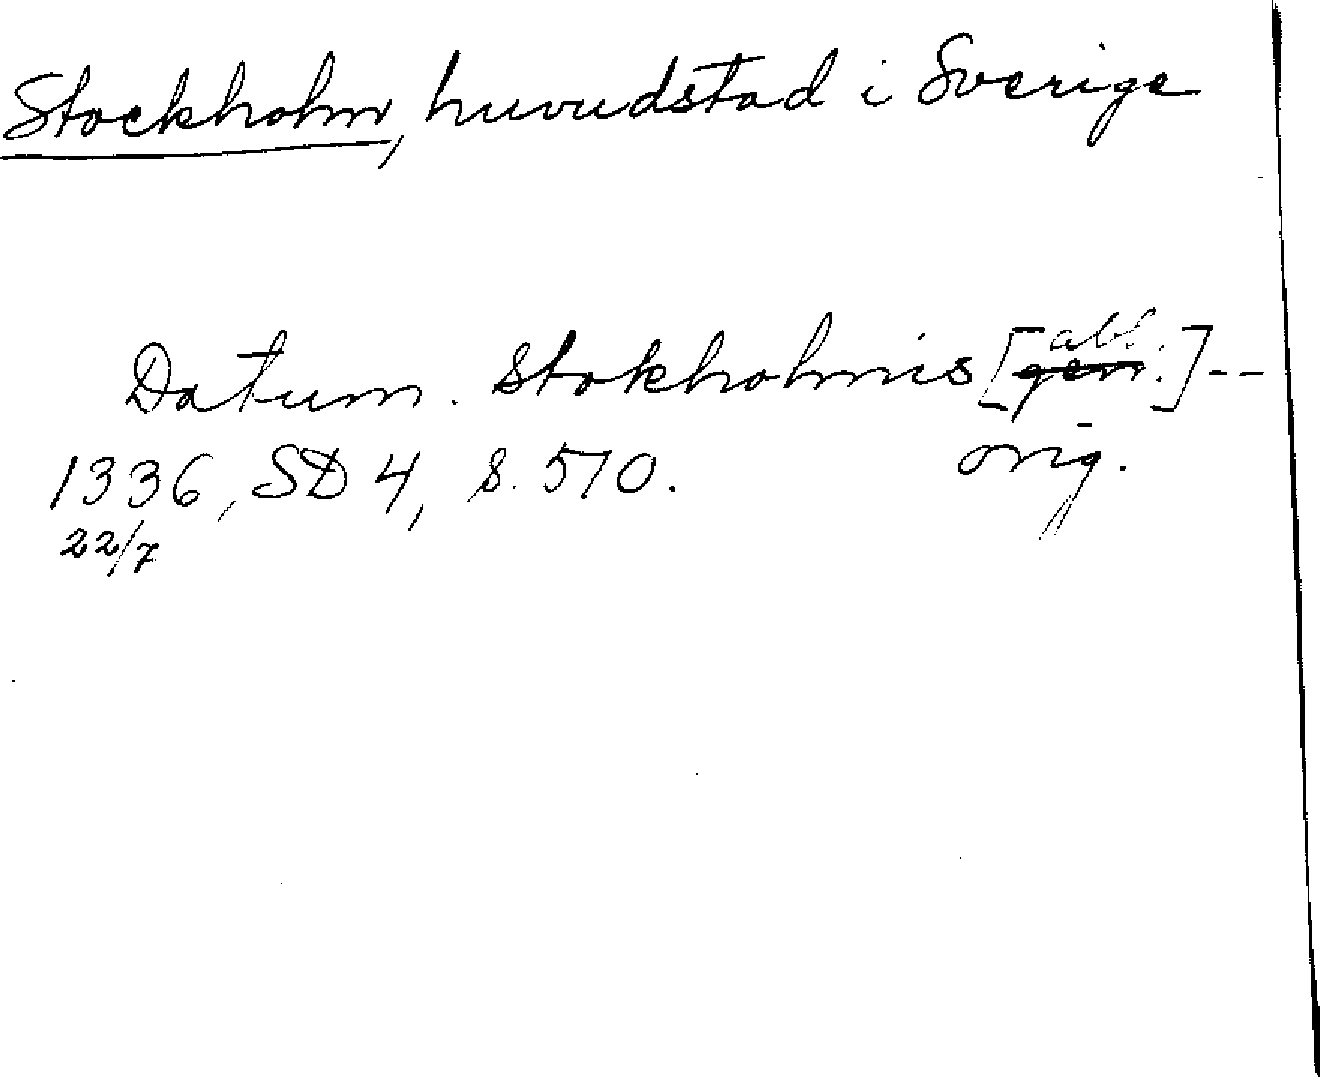 Stockholm, huvudstad i Sverige
Datum. Stokholmis [gen. abl.] --
1336, SD 4, s. 570. orig.
22/7